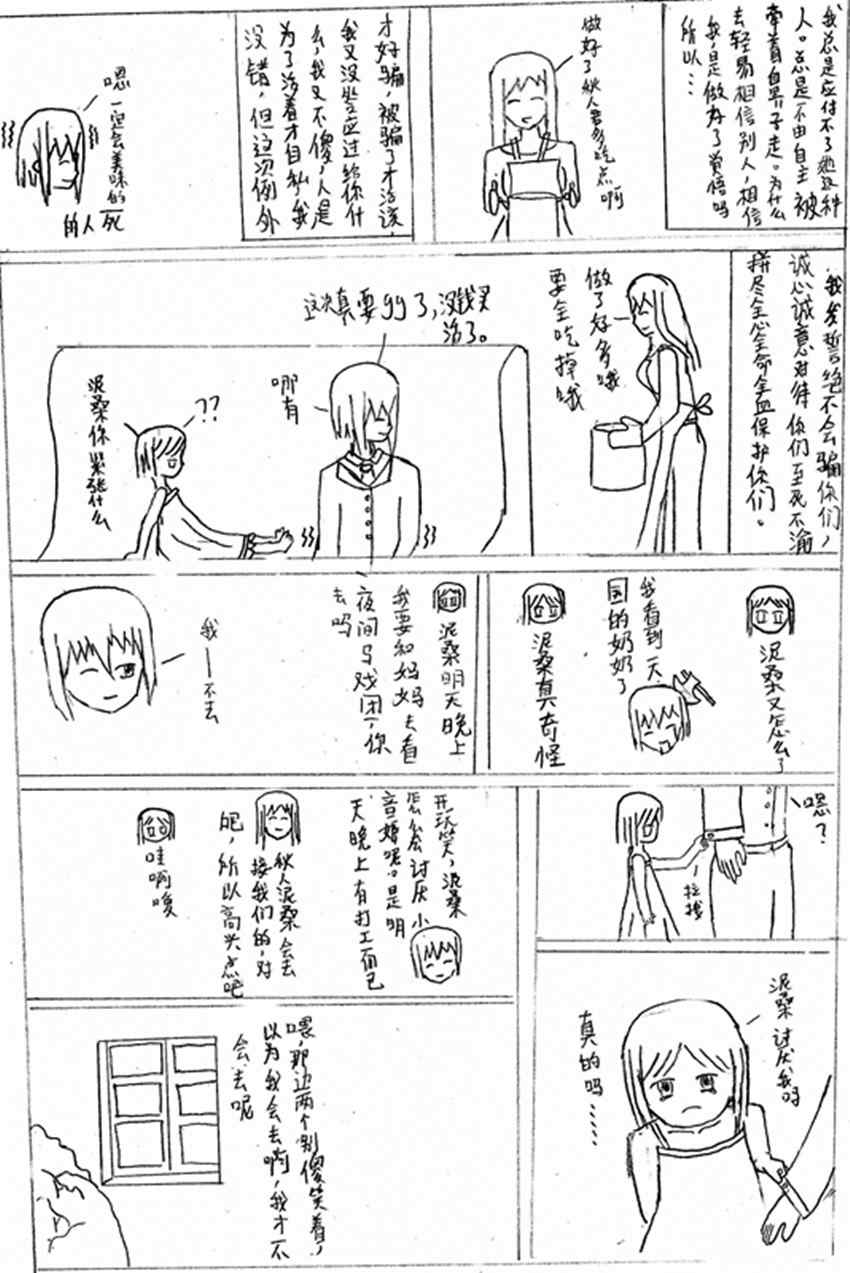 我总是应付不了她这种
人。总是不由自主被
牵着鼻子走。为什么
去轻易相信别人,相信
我,是做好了觉悟吗
所以…
做好了伙人君多吃点啊
才好骗,被骗了才活该,
我又没答应过给你什
么,我又不傻,人是
为了活着才自私,我
没错,但这次例外
嗯 一定会美味的死
的人
我发誓绝不会骗你们,
诚心诚意对待你们至死不渝
拼尽全心全命全血保护你们。
做了好多哦
要全吃掉哦
这次真要gg了,没钱买
治了。
哪有
??
泥桑你紧张什么
泥桑又怎么了
我看到一天
国的奶奶了
泥桑真奇怪
泥桑明天晚上
我要和妈妈去看
夜间马戏团,你
去吗
我—不去
嗯?
拉拽
泥桑讨厌我吗
真的吗……
开玩笑,泥桑
怎么会讨厌小
音婷呢。是明
天晚上有打工而已
伙人泥桑会去
接我们的,对
吧,所以高兴点吧
哇啊嗄
喂,那边两个别傻笑着,
以为我会去啊,我才不
会去呢